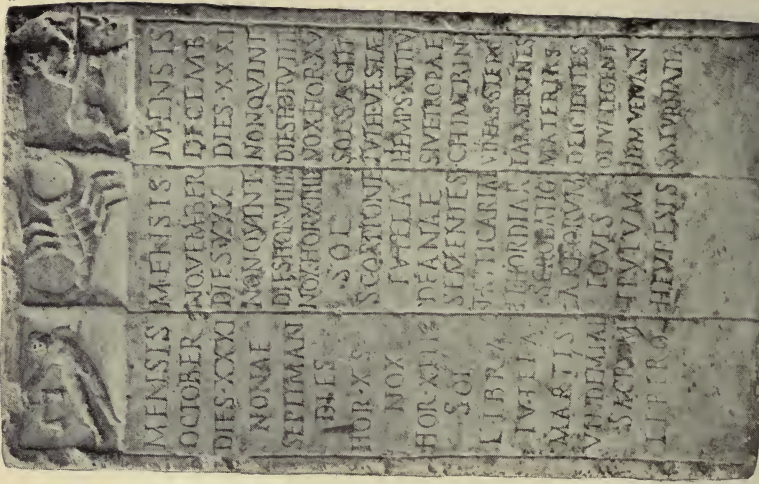 MENSIS
OCTOBER
DIES·XXXI
NONAE
SEPTIMAN
DIES
HOR·X
NOX
HOR·XIII
SOL
LIBRA
TVTELA
MARTIS
VINDEMIAE
SACRVM
LIBERO
MENSIS
NOVEMBER
DIES·XXX
NON·QVINT
DIES·HOR·VIIIIS
NOX·HOR·XIIIIS
SOL
SCORPIONE
TVTELA
DEANAE
SEMENTES
TRITICARIAE
ET HORDIAR
SCROBATIO
ARBORVM
IOVIS
EPVLVM
HEVRESIS
MENSIS
DECEMB
DIES·XXXI
NON·QVINT
DIES·HOR·VIIII
NOX·HOR·XV
SOL·SAGIT
TVTELVESTAE
HIEMPS·INITIV
SIVETROPAE
CHIMERIN
VINEAS·STERC
FABA·SERENTES
MATERIAS
DEICIENTES
OLIVA·LEGENT
ITEM·VENAN
SATVRNALIA